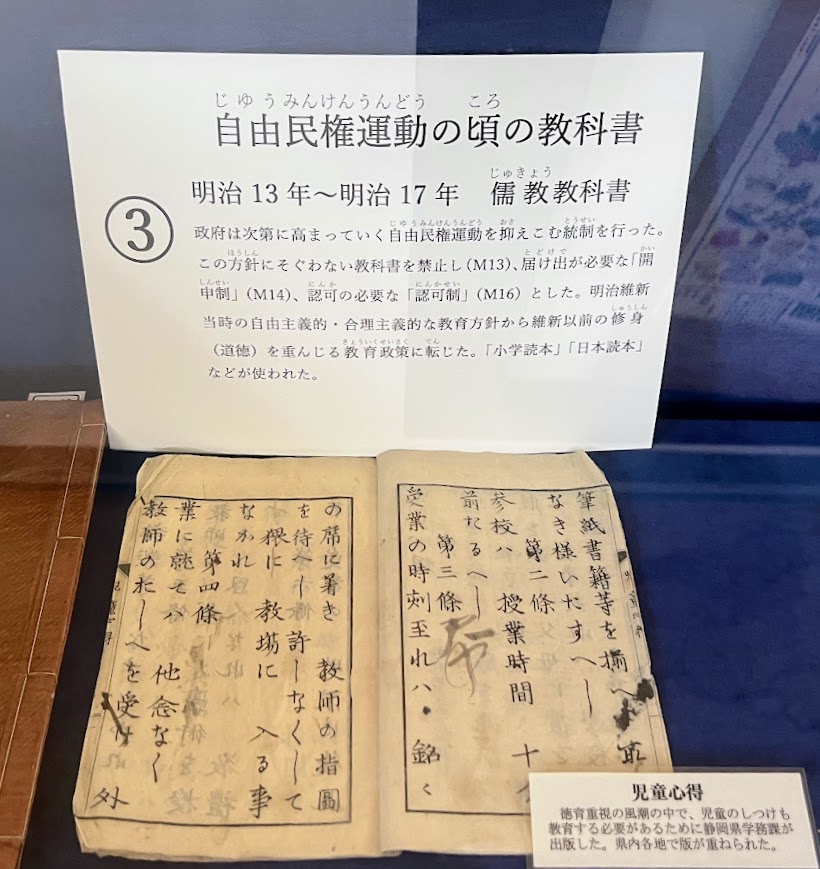 じゆうみんけんうんどう ころ
自由民権運動の頃の教科書
③
じゅきょう
明治13年～明治17年 儒教教科書
じゆうみんけんうんどう おさ とうせい
政府は次第に高まっていく自由民権運動を抑えこむ統制を行った。
ほうしん とどけで かい
この方針にそぐわない教科書を禁止し(M13)、届け出が必要な「開
しんせい にんか にんかせい
申制」(M14)、認可の必要な「認可制」(M16)とした。明治維新
しゅうしん
当時の自由主義的・合理主義的な教育方針から維新以前の修身
きょういくせいさく てん
(道徳)を重んじる教育政策に転じた。「小学読本」「日本読本」
などが使われた。
筆紙書籍等を揃へ
なき様いたすへし
第二條
参校ハ 授業時間 十
前たるへし
第三條
受業の時刻至れハ 銘〻
の席に着き 教師の指圖
を待へし 許しなくして
猥に 教場に 入る事
なかれ
第四條
業に就てハ 他念なく
教師のおしへを受け 外
児童心得
徳育重視の風潮の中で、児童のしつけも
教育する必要があるために静岡県学務課が
出版した。県内各地で版が重ねられた。